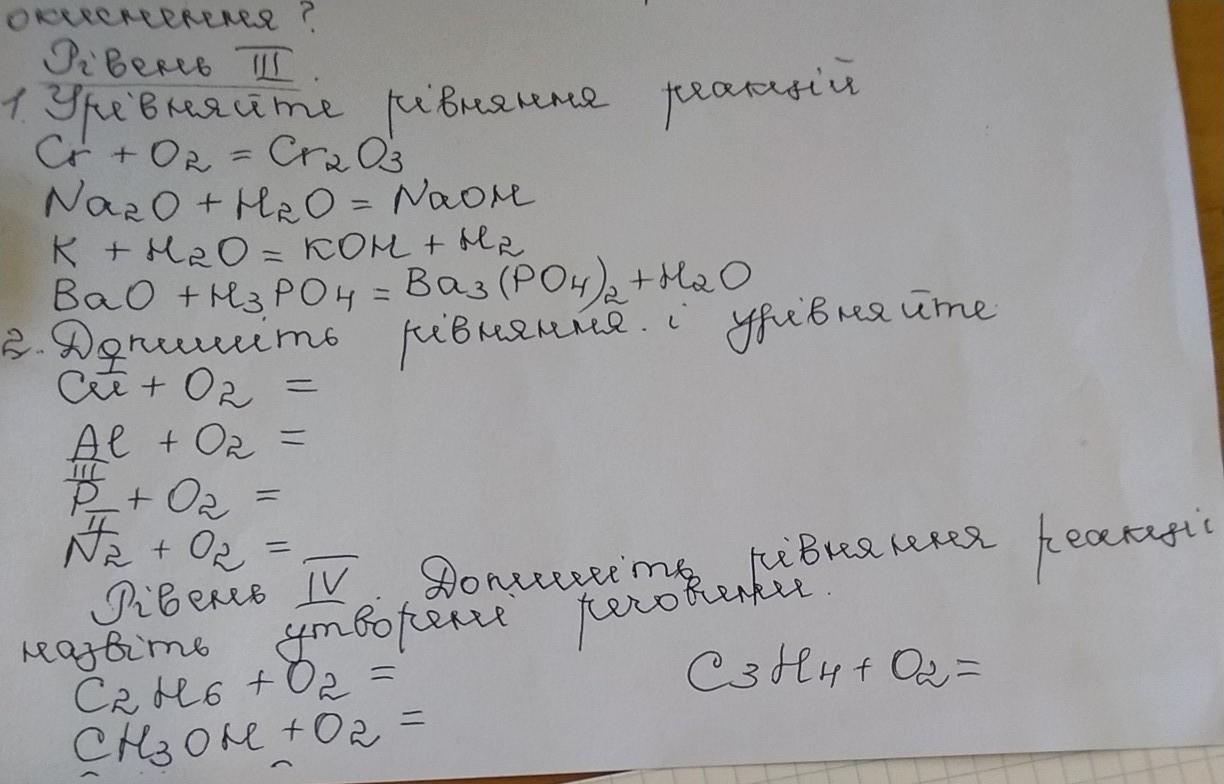 окиснення?
Рівень III.
1. Урівняйте рівняння реакцій
Cr + O2 = Cr2O3
Na2O + H2O = NaOH
K + H2O = KOH + H2
BaO + H3PO4 = Ba3(PO4)2 + H2O
2. Допишіть рівняння і урівняйте
I
Cu + O2 =
Al + O2 =
III
P + O2 =
II
N2 + O2 =
Рівень IV. Допишіть рівняння реакції
назвіть утворені речовини.
C2H6 + O2 = C3H4 + O2 =
CH3OH + O2 =